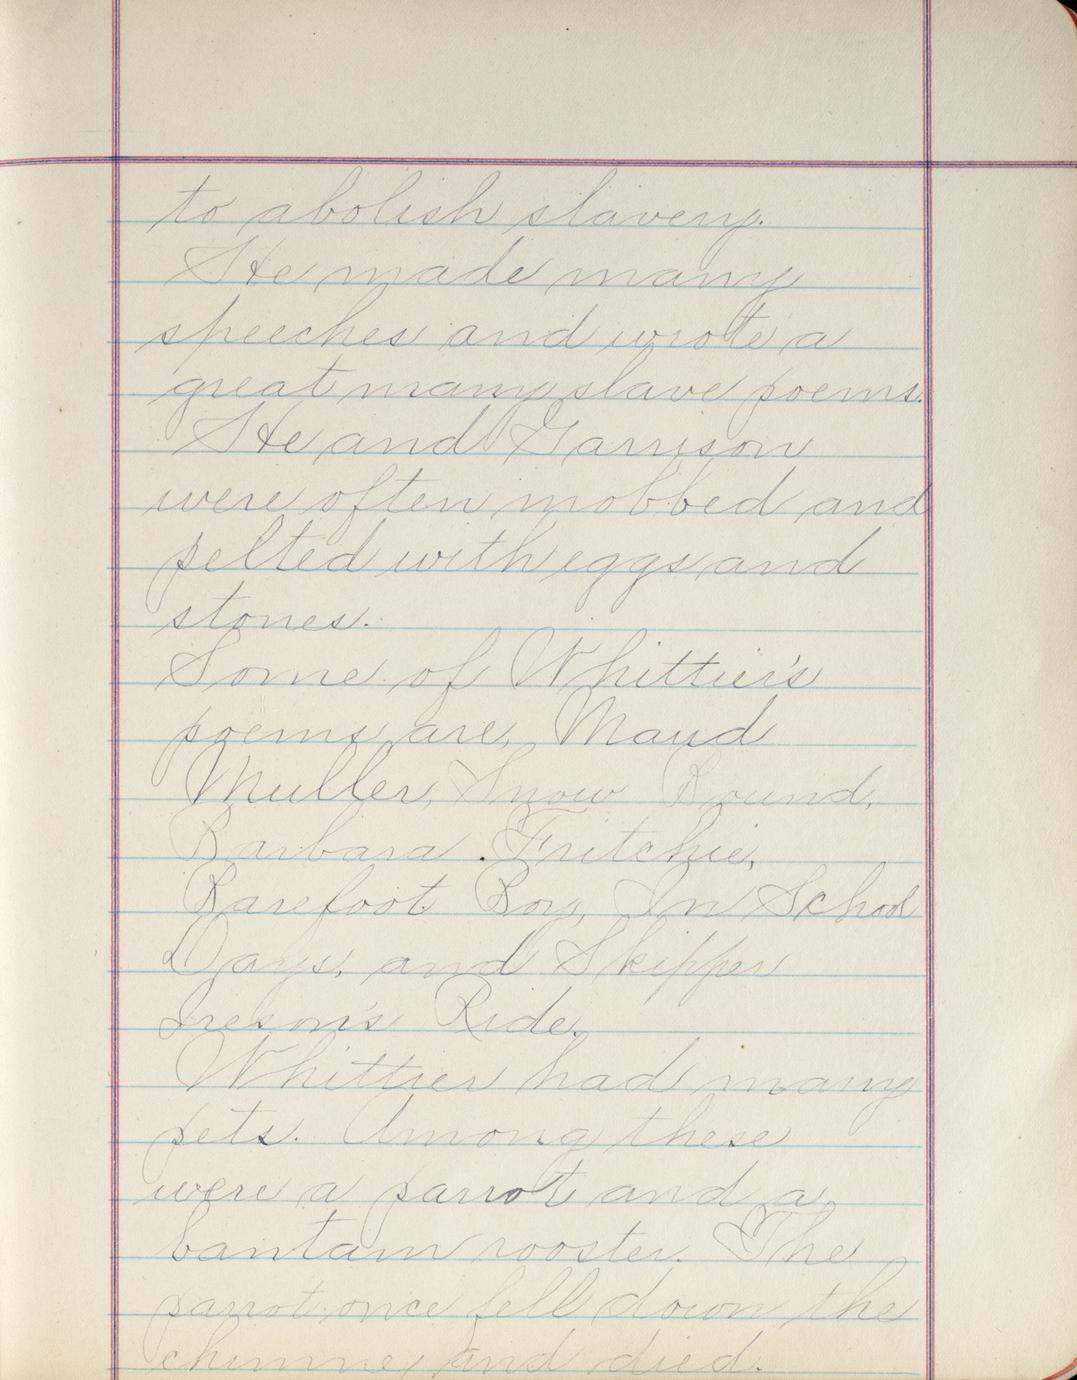 to abolish slavery.
He made many
speeches and wrote a
great many slave poems.
He and Garrison
were often mobbed and
pelted with eggs and
stones.
Some of Whittier's
poems are, Maud
Muller, Snow Bound,
Barbara Fritchie,
Barefoot Boy, In School
Days, and Skipper
Ireson's Ride.
Whittier had many
pets. Among these
were a parrot and a
bantam rooster. The
parrot once fell down the
chimney and died.